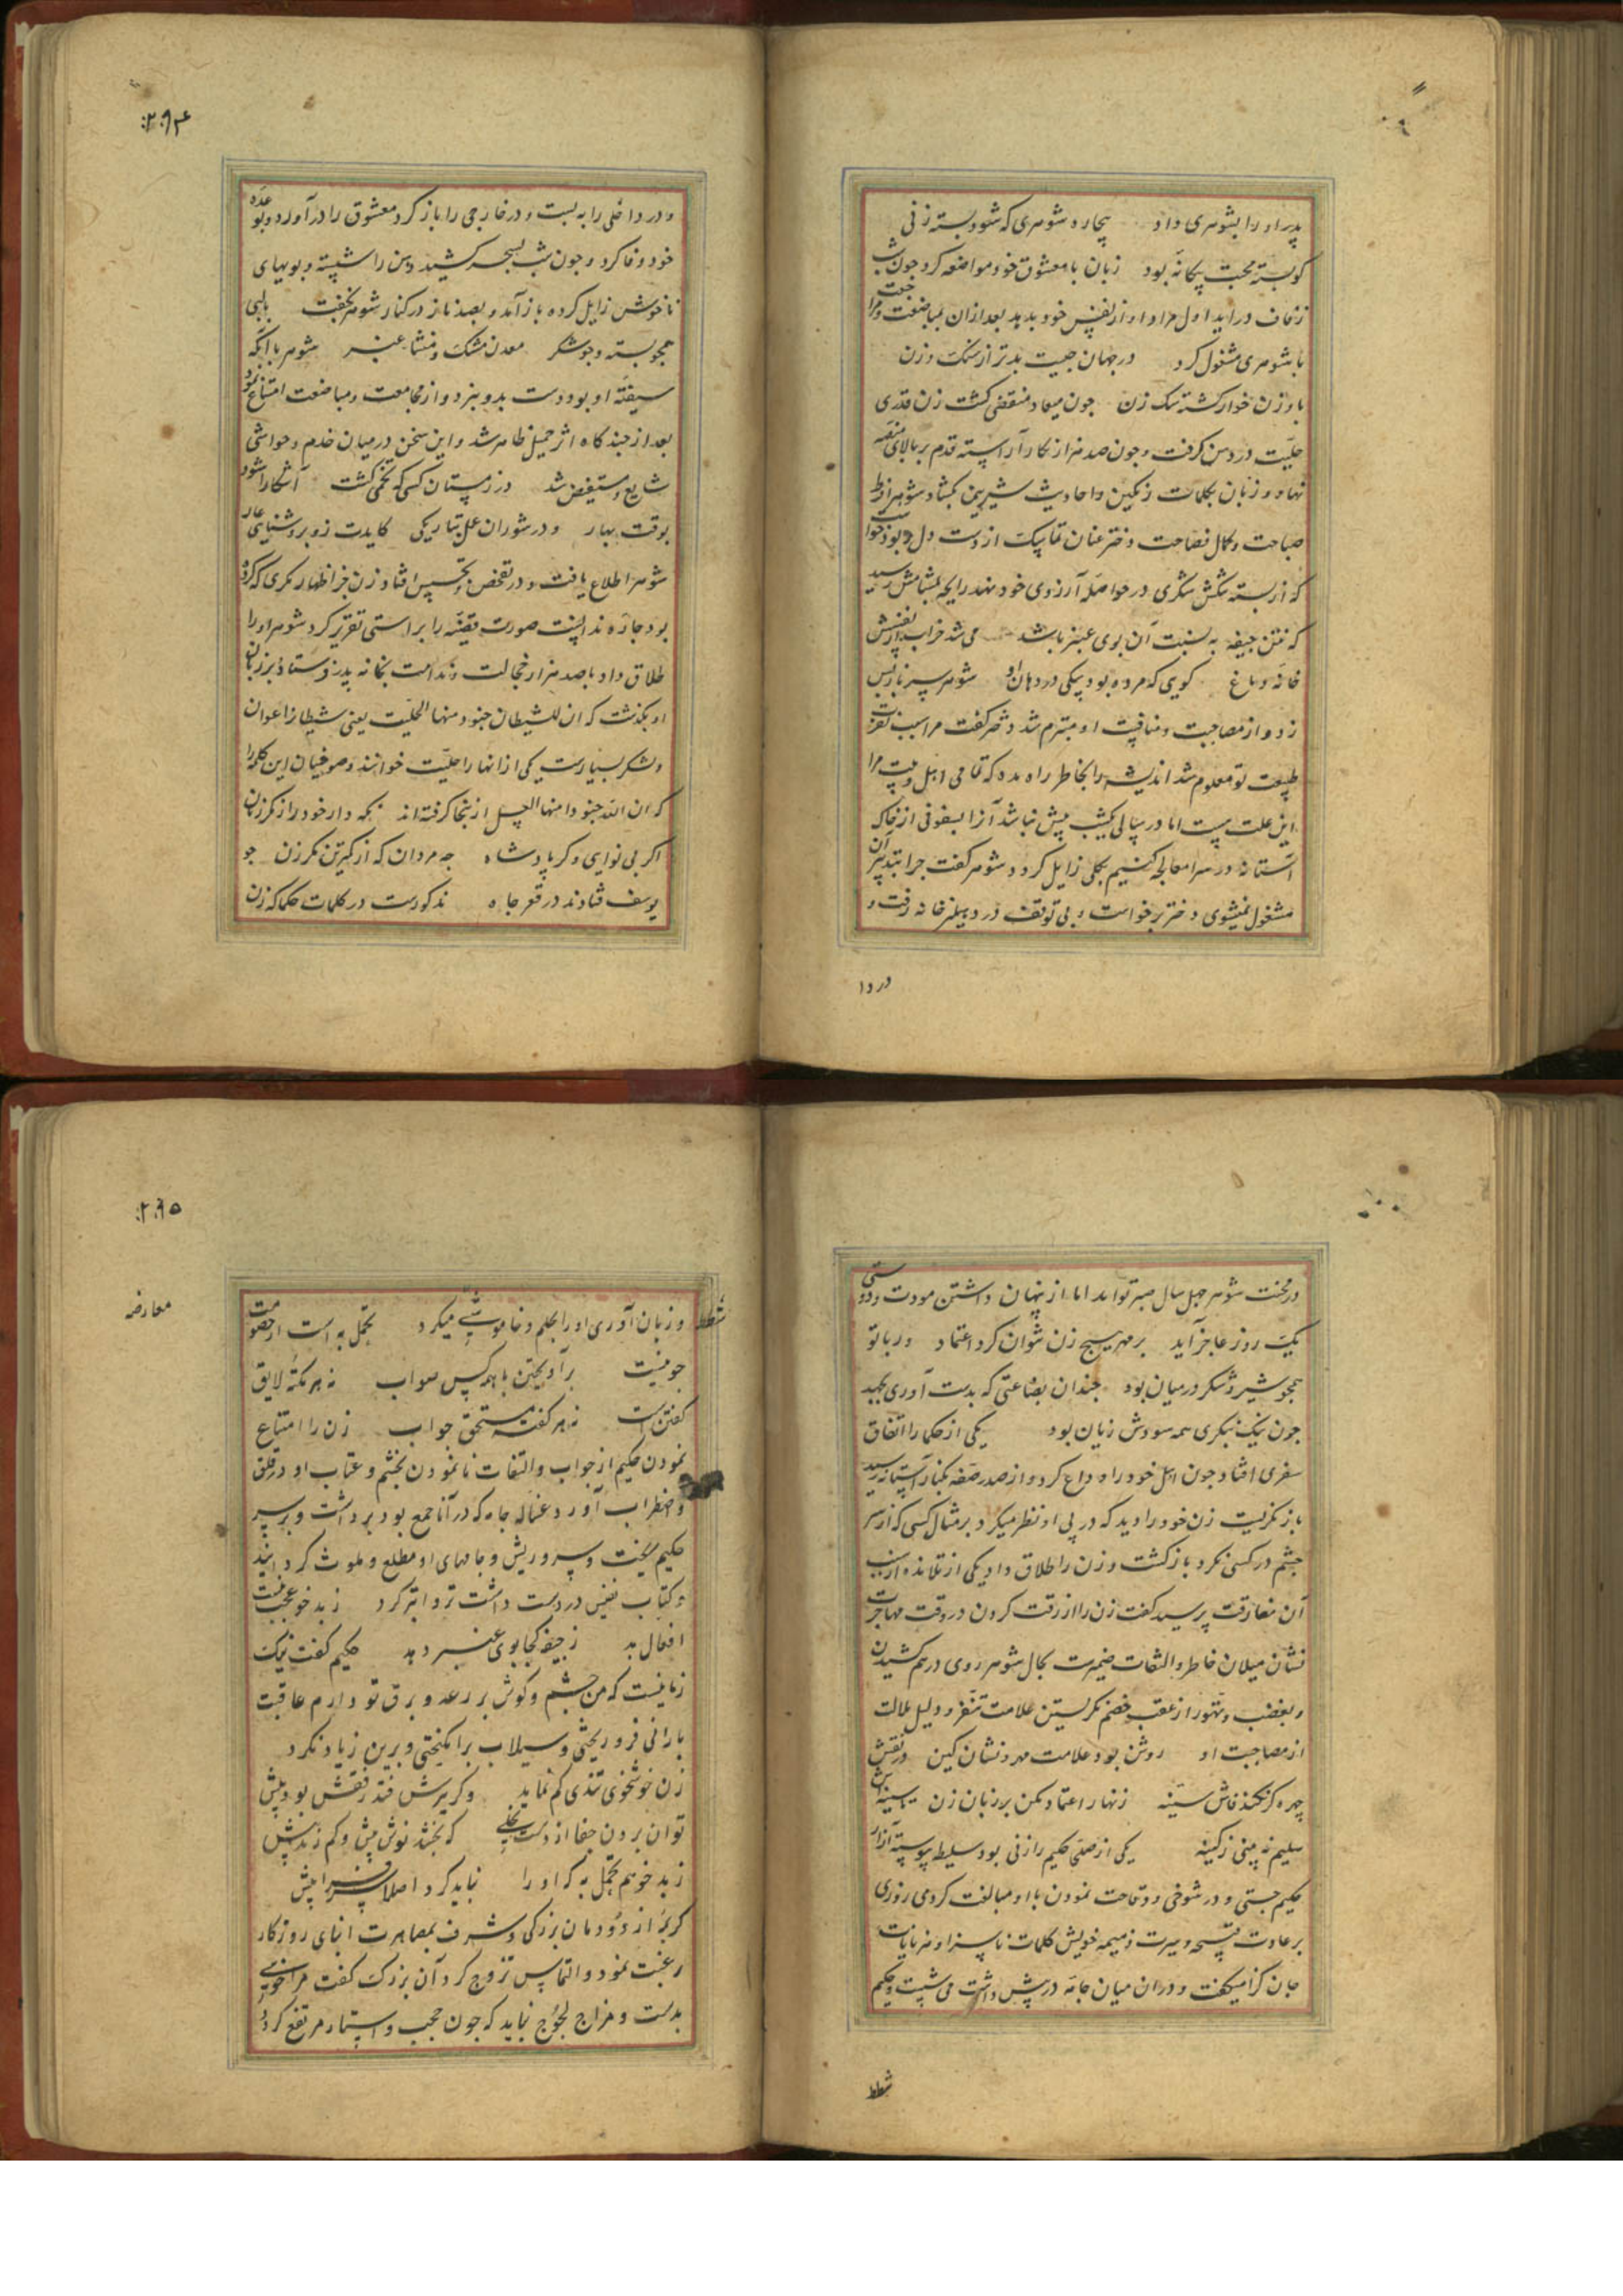 پدر او را بشوهری داد بیچاره شوهری که شود بسته زنی
کو بسته محبت بیکانه بود زبان با معشوق خود مواضعه کرد چون شب
زفاف دراید اول مرا و او از نفس خود بدید بعد از ان بمباضعت و مرا
با شوهری مشغول کرد در جهان چیست بدتر از سک و زن
باد زن خوار کشته سک زن چون میعاد منقضی کشت زن قدری
حلتیت در دهن کرفت و چون صد هزار نکار آراسته قدم بر بالای منصه
نهاد و زبان بکلمات رنکین و احادیث شیرین بکشاد شوهر از فرط
صباحت و کمال فصاحت دختر عنان تماسک از دست دل بود خواست
که از پسته تنکش شکری در حواصله آرزوی خود نهد رایحه بمشامش رسید
که نتن جیفه به نسبت آن بوی عنبر باشد می شد خراب از نفسش
خانه و باغ کویی که مرده بود یکی در دهان او شوهر سر باز پس
زد و از مصاحبت و منافست او متبرم شد دختر کفت مرا سبب نفرت
طبیعت تو معلوم شد اندیشه را بخاطر راه مده که تمامی اهل بیت مرا
این علت هست اما در سالی یکشب بیش نباشد آنرا بسفوفی از خاک
آستانه در سرا معالجه کنیم بکلی زایل کردد شوهر کفت چرا بتدبیر آن
مشغول نمیشوی دختر برخواست و بی توقف در دهلیز خانه رفت و
در دا
۲۹۴
و در داخلی را به بست و در خارجی را باز کرد معشوق را در آورد و بوعده
خود وفا کرد و چون شب بسحر کشید دهن را شسته و بویهای
ناخوش زایل کرده باز آمد و بصد ناز در کنار شوهر بخفت بالبی
همچو پسته و چو شکر معدن مشک و منشاء عنبر شوهر با آنکه
شیفته او بود دست بدو نبرد و از مجامعت و مباضعت امتناع نمود
بعد از چند کاه اثر حمل ظاهر شد و این سخن در میان خدم و حواشی
شایع و مستفیض شد در زمستان کسی که تخمی کشت آشکارا شود
بوقت بهار و در شوران عمل بتاریکی کایدت زو بروشنایی عار
شوهر اطلاع یافت و در تفحص و تجسس افتاد زن جز اظهار مکری که کرده
بود چاره ندانست صورت قضیه را براستی تقریر کرد شوهر او را
طلاق داد و با صد هزار خجالت و ندامت بخانه پدر فرستاد و بر زبان
او بکذشت که ان للشیطان جنودا منها الحلتیت یعنی شیطانرا اعوان
و لشکر بسیارست یکی از انها را حلتیت خوانند و صوفیان این کلمه را
که ان الله جنودا منها العسل از ینجا کرفته اند نکه دار خود را ز مکر زنان
اکر بی نوایی و کر پادشاه چه مردان که از کمترین مکر زن چو
یوسف فتادند در قعر چاه مذکورست در کلمات حکما که زن
در محنت شوهر چهل سال صبر تواند اما از پنهان داشتن مودت و دوستی
یک روز عاجز آید بر مهر هیچ زن نتوان کرد اعتماد ور با تو
همچو شیر و شکر در میان بود چندان بضاعتی که بدست آوری بجهد
چون نیک بنکری همه سودش زیان بود یکی از حکما را اتفاق
سفری افتاد چون اهل خود را وداع کرد و از صدر صفه بکنار آستانه رسید
باز نکریست زن خود را دید که در پی او نظر میکرد بر مثال کسی که از سر
چشم در کسی نکرد باز کشت و زن را طلاق داد یکی از تلامذه از سبب
آن مفارقت پرسید کفت زن را از رقت کردن در وقت مهاجرت
نشان میلان خاطر و التفات ضمیرست بحال شوهر روی در هم کشیدن
و بغضب و تهور از عقب خصم نکریستن علامت تنفر و دلیل ملالت
از مصاحبت او روشن بود علامت مهر و نشان کین در نقش
چهره کر نکند فاش سینه زنهار اعتماد مکن بر زبان زن با سینه اش
سلیم نه بینی ز کینه یکی از صفی حکیم را زنی بود سلیطه پیوسته آزار
حکیم جستی و در شوخی و وقاحت نمودن با او مبالغت کردی روزی
بر عادت قبیحه و سیرت ذمیمه خویش کلمات ناسزا و هزیانات
جان کزا میکفت و در ان میان جامه در پیش داشت می شست و حکیم
شطط
۲۹۵
معارضه
شطط و زبان آوری او را بحلم و خاموشی میکرد تحمل به است از خصومت
چو نیست برآویختن با همه کس صواب نه هر نکته لایق
کفتن است نه هر کفته مستحق جواب زن را امتناع
نمودن حکیم از جواب و التفات نا نمودن بخشم و عتاب او در قلق
و اضطراب آورد غساله جامه که در آنا جمع بود برداشت و بر سر
حکیم ریخت و سر و ریش و جامهای او مطلع و ملوث کردانید
و کتاب نفیس در دست داشت تر و ابتر کرد ز بد خو عجب نیست
افعال بد ز جیفه کجا بوی عنبر دهد حکیم کفت نیک
زمانیست که من چشم و کوش بر رعد و برق تو دارم عاقبت
بارانی فرو ریختی و سیلاب برانکیختی و برین زیاد نکرد
زن خوشخوی تندی کم نماید و کر پرسش فتد رفقش بود پیش
توان بردن جفا از دست نخلی که بخشد نوش پیش و کم زند نیش
ز بد خو هم تحمل به که او را نباید کرد اصلا سرزنش
کریمه از دودمان بزرکی و شرف بمصاهرت ابنای روزکار
رغبت نمود و التماس تزوج کرد آن بزرک کفت مرا خویی
بدست و مزاج لجوج نباید که چون حجب و استار مرتفع کردد